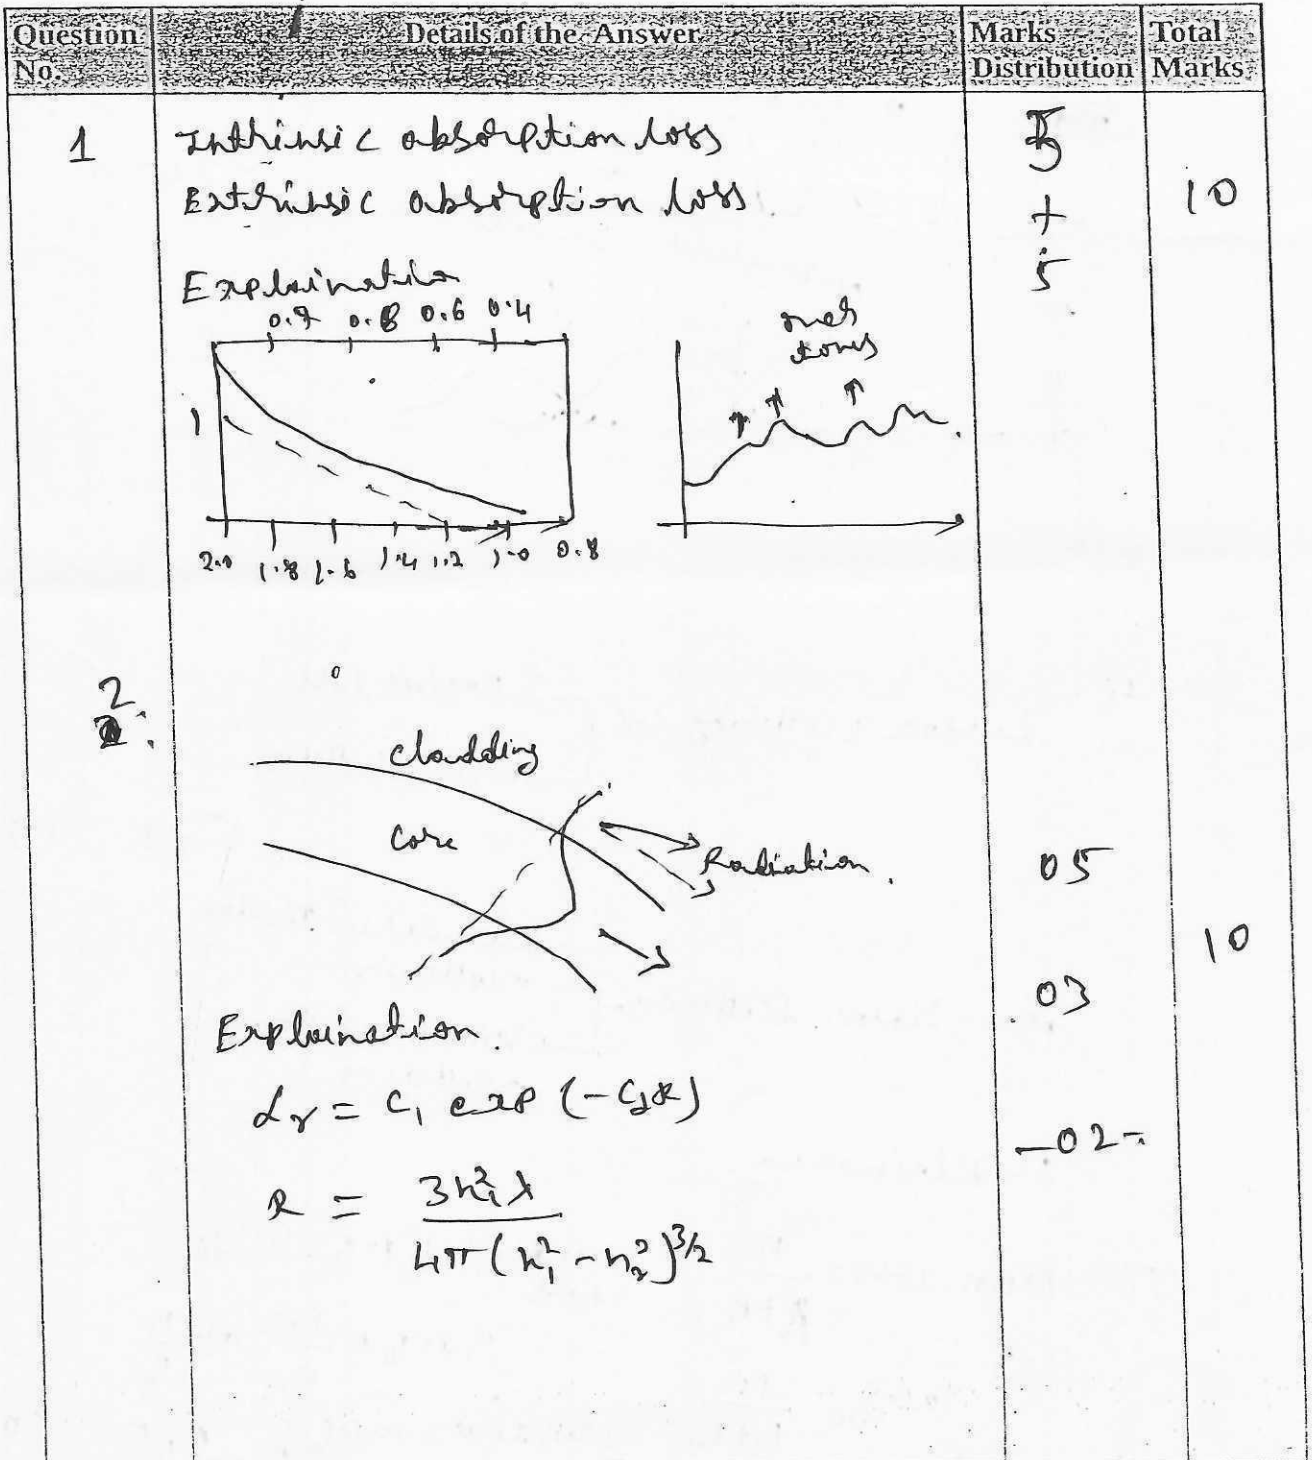 Question No. Details of the Answer Marks Distribution Total Marks
1 Intrinsic absorption loss 5
Extrinsic absorption loss + 10
Explaination 5
0.9 0.8 0.6 0.4
over tones
1
2.0 1.8 1.6 1.4 1.2 1.0 0.8
2
2:
cladding
Core
Radiation. 05
10
Explaination. 03
αr = C1 exp (-C2R) -02-
R = 3n1²λ / 4π(n1² - n2²)^3/2